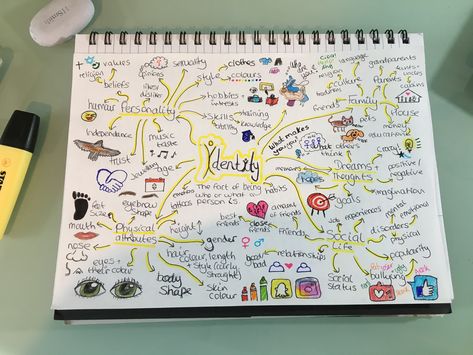 values
religion
beliefs
political
opinions
sexuality
likes/
dislikes
humour
Personality
Independance
trust
music
taste
style
clothes
colours
hobbies
interests
skills
ability
training
knowledge
education
friends
language
culture
grandparents
Parents
aunts+
uncles
cousins
Family
House
pets
What makes
you, you?
what others
think
Identity
The fact of being
who or what a
person is
age
job
tattoos
habits
memories
hopes
Dreams+
thoughts
positive/
negative
imagination
goals
foot
size
eyebrow
shape
mouth
nose
Physical
attributes
height
gender
eyes +
their colour
hair
colour, length
style (curly
straight)
body
shape
skin
colour
best
friends
close
friends
amount of
friends
friends
good/
bad
relationships
Social
Life
job
experiences
mental
emotional
disorders
physical
popularity
social
status
bullying
STABILO